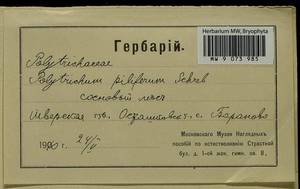 Herbarium MW, Bryophyta
MW 9 073 985
Гербарій.
Polytrichaceae
Polytrichum piliferum Schreb
сосновый лѣсъ
Тверская губ. Осташковск. с. Бараново
1910 г. 24/V
Московскаго Музея Наглядныхъ
пособій по естествознанію Страстной
бул. д. 1-ой жен. гимн. кв. 8.